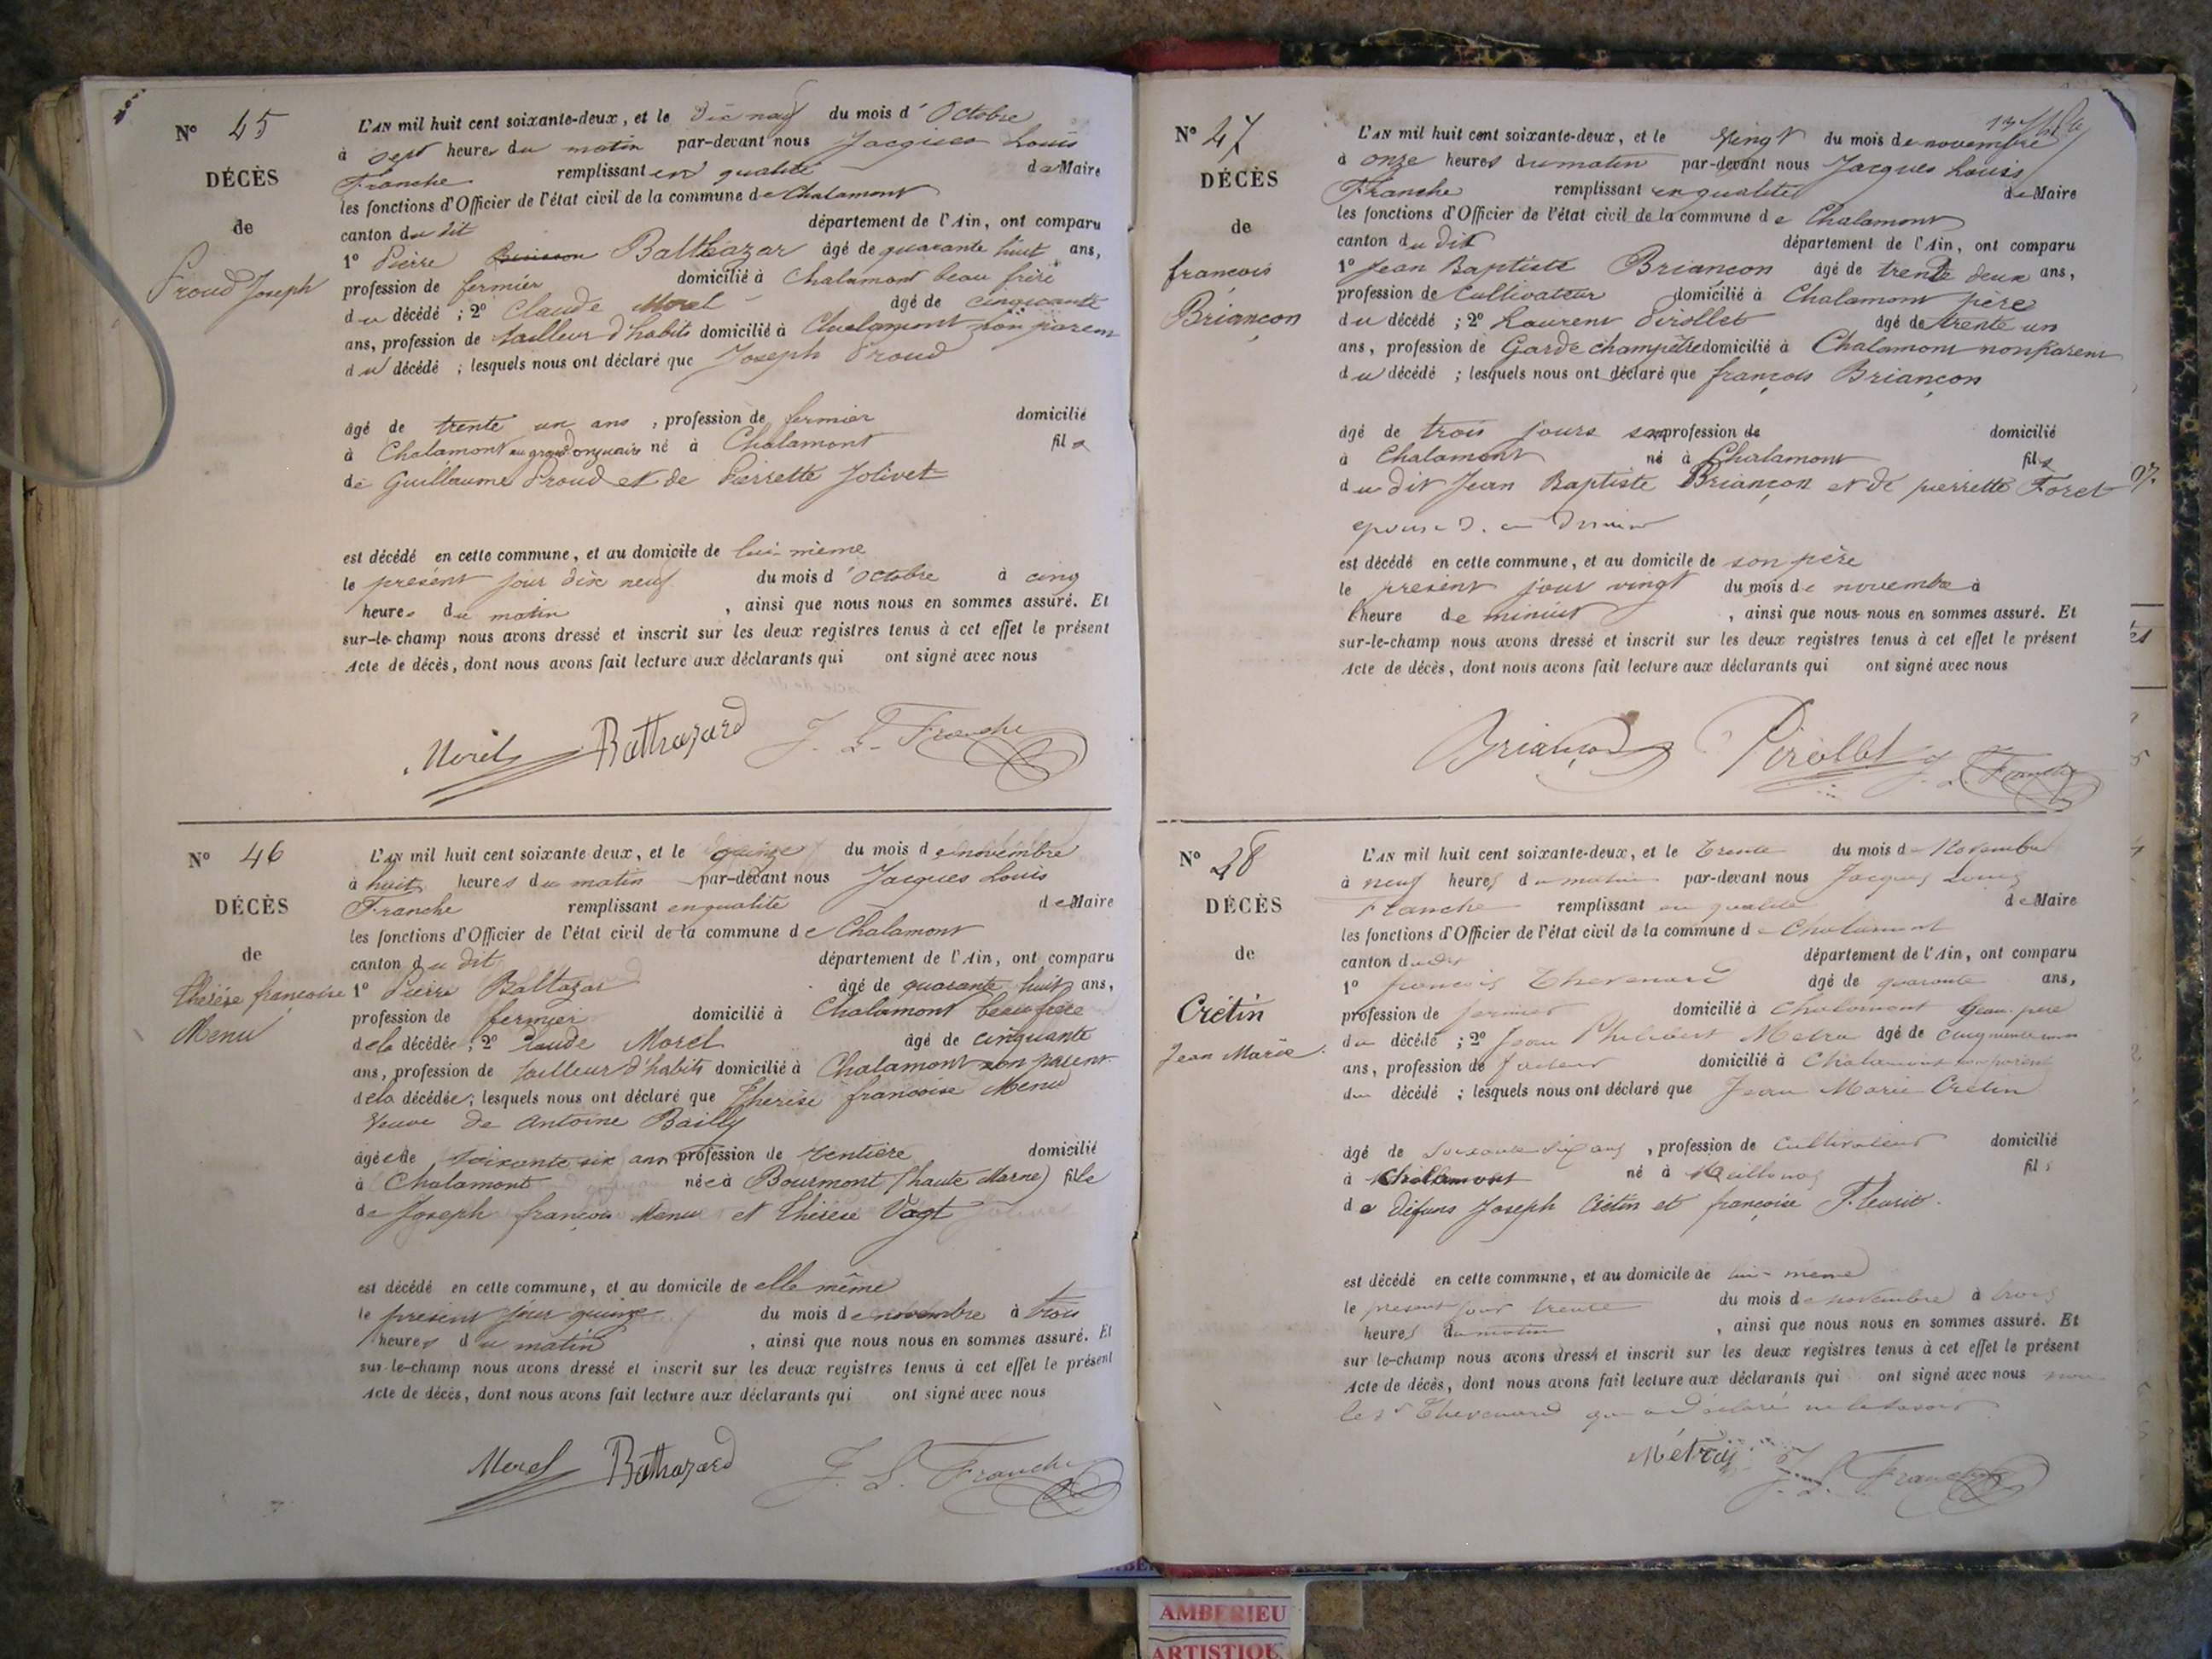 N° 45
DÉCÈS
de
Proud Joseph
L'AN mil huit cent soixante-deux, et le dix neuf du mois d'Octobre
à sept heures du matin par-devant nous Jacques Louis
Franche remplissant en qualité de Maire
les fonctions d'Officier de l'état civil de la commune de Chalamont
canton du dit département de l'Ain, ont comparu
1° Pierre Balthazar âgé de quarante huit ans,
profession de fermier domicilié à Chalamont beau frère
du décédé ; 2° Claude Morel âgé de cinquante
ans, profession de tailleur d'habits domicilié à Chalamont non parent
du décédé ; lesquels nous ont déclaré que Joseph Proud
âgé de trente un ans, profession de fermier domicilié
à Chalamont au grand né à Chalamont fils
de Guillaume Proud et de Pierrette Jolivet
est décédé en cette commune, et au domicile de lui-même
le présent jour dix neuf du mois d'octobre à cinq
heures du matin, ainsi que nous nous en sommes assuré. Et
sur-le-champ nous avons dressé et inscrit sur les deux registres tenus à cet effet le présent
Acte de décès, dont nous avons fait lecture aux déclarants qui ont signé avec nous
Morel Balthazard J. L. Franche
N° 46
DÉCÈS
de
Thérèse françoise
Menu
L'AN mil huit cent soixante deux, et le quinze du mois de novembre
à huit heures du matin par-devant nous Jacques Louis
Franche remplissant en qualité de Maire
les fonctions d'Officier de l'état civil de la commune de Chalamont
canton du dit département de l'Ain, ont comparu
1° Pierre Baltazar âgé de quarante huit ans,
profession de fermier domicilié à Chalamont beau frère
de la décédée ; 2° Claude Morel âgé de cinquante
ans, profession de tailleur d'habits domicilié à Chalamont non parent
de la décédée ; lesquels nous ont déclaré que Thérèse françoise Menu
Veuve de Antoine Bailly
âgée de soixante six ans profession de rentière domicilié
à Chalamont née à Bourmont (haute Marne) fille
de Joseph françois Menu et Thérèse Vogt
est décédé en cette commune, et au domicile de elle même
le présent jour quinze du mois de novembre à trois
heures du matin, ainsi que nous nous en sommes assuré. Et
sur-le-champ nous avons dressé et inscrit sur les deux registres tenus à cet effet le présent
Acte de décès, dont nous avons fait lecture aux déclarants qui ont signé avec nous
Morel Balthazard J. L. Franche
N° 47
DÉCÈS
de
françois
Briançon
L'AN mil huit cent soixante-deux, et le Vingt du mois de novembre
à onze heures du matin par-devant nous Jacques Louis
Franche remplissant en qualité de Maire
les fonctions d'Officier de l'état civil de la commune de Chalamont
canton du dit département de l'Ain, ont comparu
1° Jean Baptiste Briançon âgé de trente deux ans,
profession de Cultivateur domicilié à Chalamont père
du décédé ; 2° Laurent Pirollet âgé de trente un
ans, profession de Garde champêtre domicilié à Chalamont non parent
du décédé ; lesquels nous ont déclaré que françois Briançon
âgé de trois jours sans profession de domicilié
à Chalamont né à Chalamont fils
du dit Jean Baptiste Briançon et de pierrette Foret
est décédé en cette commune, et au domicile de son père
le présent jour vingt du mois de novembre à
l'heure de minuit, ainsi que nous nous en sommes assuré. Et
sur-le-champ nous avons dressé et inscrit sur les deux registres tenus à cet effet le présent
Acte de décès, dont nous avons fait lecture aux déclarants qui ont signé avec nous
Briançon Pirollet J. L. Franche
N° 48
DÉCÈS
de
Crétin
Jean Marie
L'AN mil huit cent soixante-deux, et le trente du mois de Novembre
à neuf heures du matin par-devant nous Jacques Louis
Franche remplissant en qualité de Maire
les fonctions d'Officier de l'état civil de la commune de Chalamont
canton du dit département de l'Ain, ont comparu
1° françois Thevenard âgé de quarante ans,
profession de fermier domicilié à Chalamont
du décédé ; 2° Jean Philibert Metra âgé de
ans, profession de facteur domicilié à Chalamont non parent
du décédé ; lesquels nous ont déclaré que Jean Marie Crétin
âgé de ans, profession de cultivateur domicilié
à Chalamont né à Meillonas fils
de défunts Joseph Crétin et françoise
est décédé en cette commune, et au domicile de lui-même
le présent jour trente du mois de novembre à trois
heures du matin, ainsi que nous nous en sommes assuré. Et
sur le-champ nous avons dressé et inscrit sur les deux registres tenus à cet effet le présent
Acte de décès, dont nous avons fait lecture aux déclarants qui ont signé avec nous non
le sr Thevenard qui a déclaré ne le savoir
Métras J. L. Franche
AMBERIEU
ARTISTIQU